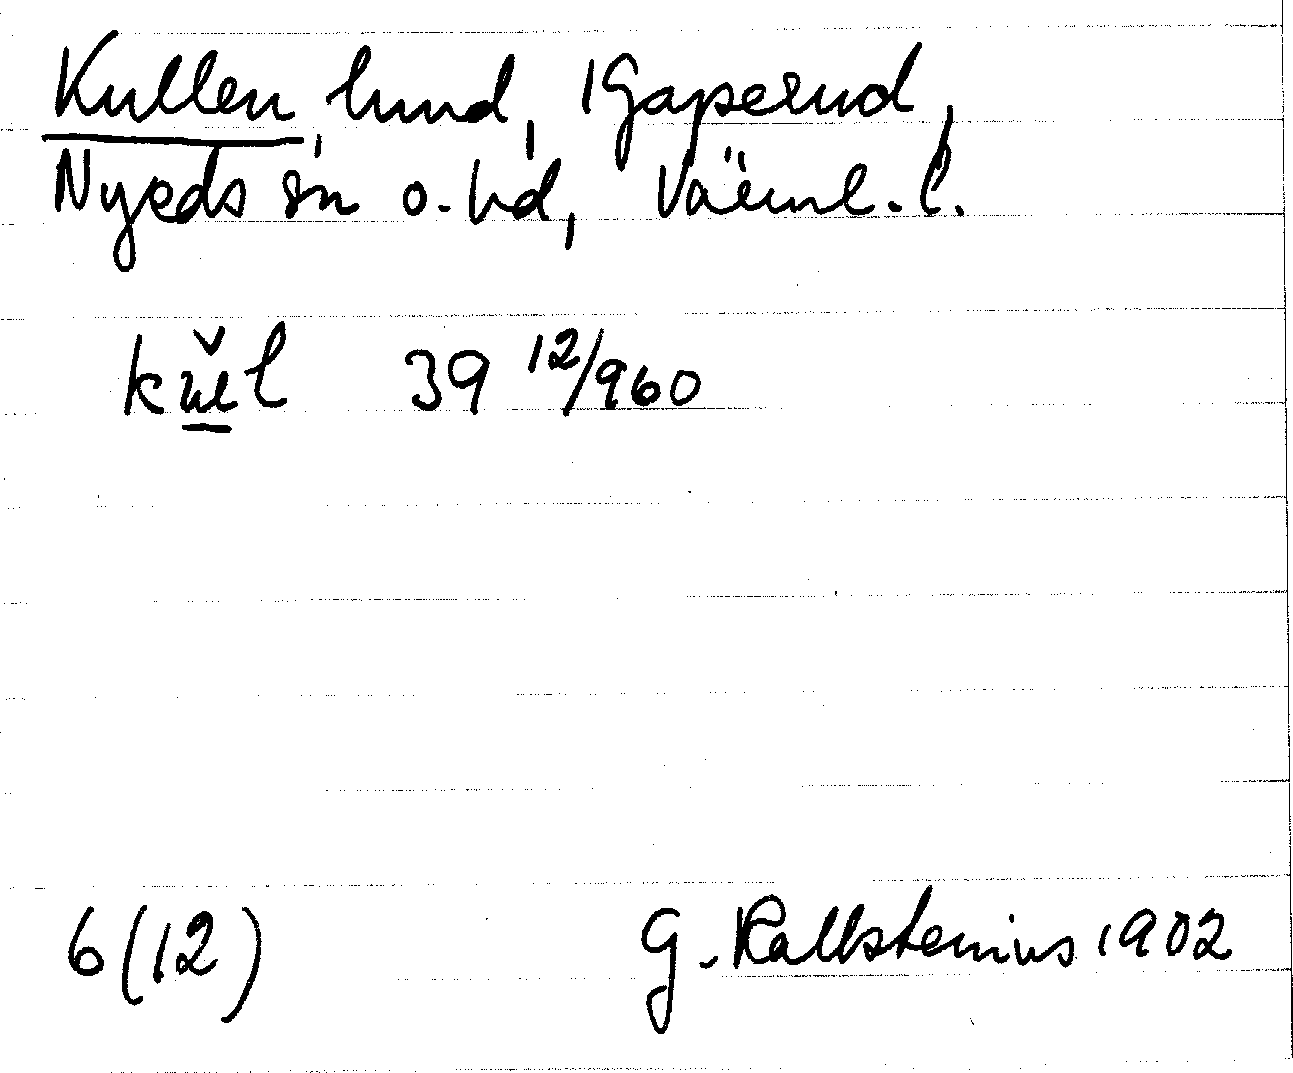 Kullen, lund, 1 Gaperud,
Nyeds sn o. hd, Värml. l.
39 12/960
6 (12) G. Kallstenius 1902